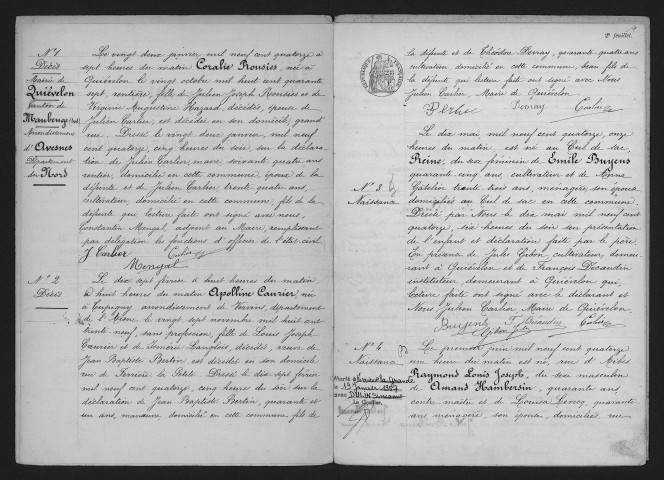 N° 1
Décès
Mairie de
Quiévelon
Canton de
Maubeuge (Nord)
Arrondissement
d'Avesnes
Département
du Nord
Le vingt deux janvier mil neuf cent quatorze à
sept heures du matin Coralie Rousies, née à
Quiévelon le vingt octobre mil huit cent quarante
sept, rentière, fille de Julien Joseph Rousies et de
Virginie Augustine Hazard, décédés, épouse de
Julien Carlier, est décédée en son domicile, grand
rue. Dressé le vingt deux janvier, mil neuf
cent quatorze, cinq heures du soir, sur la déclara-
tion de Julien Carlier, maire soixante quatre ans
rentier, domicilié en cette commune, époux de la
défunte et de Julien Carlier trente quatre ans,
cultivateur, domicilié en cette commune, fils de la
défunte qui lecture faite ont signé avec nous,
Constantin Mengal, adjoint au Maire, remplissant
par délégation les fonctions d'officier de l'état civil.
J Carlier Carlier
Mengal
N° 2
Décès
Le dix sept février à huit heures du matin
à huit heures du matin Apolline Cauvier, née
à Eupigny arrondissement de Vervins, département
de l'Aisne le vingt sept novembre mil huit cent
trente neuf, sans profession, fille de Louis Joseph
Cauvier et de Langlois, décédés, veuve de
Jean Baptiste Bertin est décédée en son domicile
rue de Ferrière la Petite. Dressé le dix sept février
mil neuf cent quatorze, cinq heures du soir sur la
déclaration de Jean Baptiste Bertin, quarante et
un ans, manœuvre, domicilié en cette commune, fils de
2e feuillet
la défunte et de Théodore Perray, quarante quatre ans
cultivateur domicilié en cette commune, beau fils de
la défunte qui lecture faite ont signé avec Nous
Julien Carlier, Maire de Quiévelon
Bertin Perray Carlier
N° 3
Naissance
Le dix mai mil neuf cent quatorze, onze
heures du matin, est née au Cul de sac,
Reine, du sexe féminin de Emile Buyens
quarante cinq ans, cultivateur et de Anna
Gatelier trente trois ans, ménagère, son épouse
domiciliés au Cul de sac en cette commune.
Dressé par Nous le dix mai mil neuf cent
quatorze, six heures du soir sur présentation
de l'enfant et déclaration faite par le père.
En présence de Jules Gibon, cultivateur, demeu-
rant à Quiévelon et de François Decaudin
instituteur, demeurant à Quiévelon qui,
lecture faite ont signé avec le déclarant et
Nous Julien Carlier Maire de Quiévelon
Buyens F. Decaudin Carlier
N° 4
Naissance
Marié à Ferrière la Grande
le 19 janvier 1937
avec
Le Greffier,
Le premier juin mil neuf cent quatorze
une heure du matin est né, rue d'Aibes
Raymond Louis Joseph, du sexe masculin
de Amand Hambersin, quarante ans,
contre maître et de Louisa Lencq, quarante
ans ménagère, son épouse, domiciliés, rue